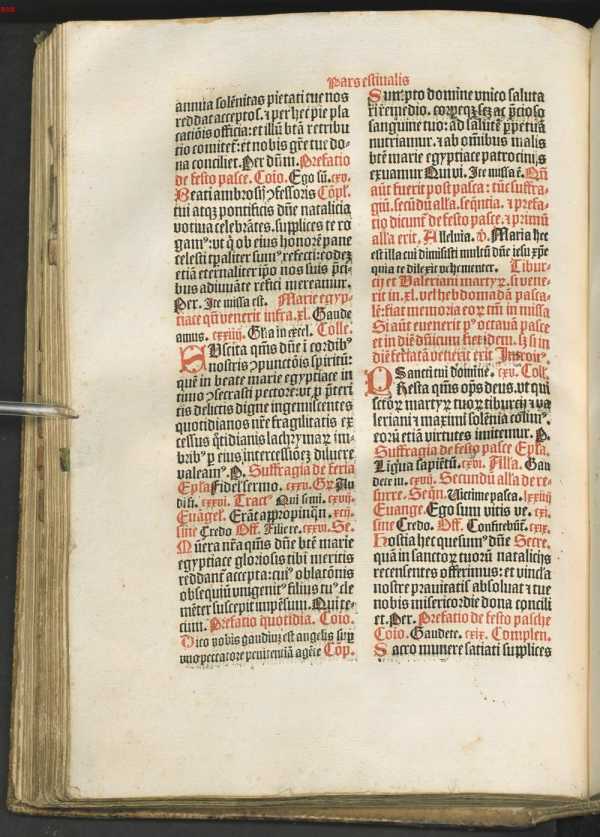 Pars estiualis
annua solēnitas pietati tue nos
reddat acceptos. ⁊ per hec pie pla
catiōis officia: et illū btm̄ retribu
tio comitet᷑: et nobis gr̄e tue do⸗
na conciliet. Per dn̄m. Prefatio
de festo pasce. Coīo. Ego sū. cxv.
Beati ambrosij ꝯfessoris Cōpl̄.
tui atqꝫ pontificis dn̄e natalicia
votiua celebrātes. supplices te ro
gamꝰ: vt q̇ ob eius honorē pane
celesti tpaliter sumꝰ refecti: eodeꝫ
etiā eternaliter ip̄o nos suis p̄ci⸗
bus adiuuāte refici mereamur.
Per. Ite missa est. Marie egyp⸗
tiace qn̄ venerit infra. xl. Gaude
amus. cxxiiij. Gl̄ia in excel. Colle.
SUscita qm̄s dn̄e ī cordibꝰ
nostris ꝯpunctōis spiritū:
quē in beate marie egyptiace in
timo ꝯsecrasti pectore: vt p̱ p̄teri
tis delictis digne ingemiscentes
quotidianos nr̄e fragilitatis ex
cessus q̇tidianis lachrymaꝝ im⸗
bribꝰ p̱ eius intercessiōeꝫ diluere
valeamꝰ. P. Suffragia de feria
Ep̄l̄a Fidel'sermo. cxxv. Gr̄. Au
di fi. cxxvi. Tractꝰ Qui semi. cxvij.
Euāgel̄. Erāt appropinq̄n. xcij.
sine Credo Off. Filie re. cxxvi. Se.
MUnera nr̄a qm̄s dn̄e btē marie
egyptiace gloriosis tibi meritis
reddant᷑ accepta: cuiꝰ oblatōnis
obsequiū vnigenitꝰ filius tuꝰ cle
mēter suscepit impēsum. Qui te⸗
cum. Prefatio quotidia. Coīo.
Dico vobis gaudiū est angelis sup̱
vno peccatore penitenciā agēte Cōp.
Sumpto domine vnico saluta
ri remedio. corpeqꝫ sꝫ ac p̄cioso
sanguine tuo: ad salutē p̱petuā
nutriamur. ⁊ ab om̄ibus malis
btē marie egyptiace patrocinijs
exuamur Qui vi. Ite missa ē. Qn̄
aūt fuerit post pasca: tūc suffra⸗
giū. secūdū all'a. seq̄ntia. ⁊ prefa⸗
tio dicunt᷑ de festo pasce. ⁊ primū
all'a erit. Alleluia. v̄. Maria hec
est illa cui dimisisti multū dn̄e iesu xp̄e
quia te dilexit vehementer. Tibur⸗
cij et Valeriani martyꝝ. si vene⸗
rit in. xl. vel hebdomadā pasca⸗
lē: fiat memoria eoꝝ tm̄ in missa
Si aūt euenerit pꝰ octauā pasce
et in die dn̄icum fiet idem. Sꝫ si in
diē seriatā venerit erit Introitꝰ.
Sancti tui domine. cxv. Coll'.
PResta qm̄s op̄s deus. vt qui
sctōꝝ martyꝝ tuoꝝ tiburcij ⁊ va
leriani ⁊ maximi solēnia colimꝰ.
eorū etiā virtutes imitemur. P.
Suffragia de festo pasce Ep̄l̄a.
Līgua sapiētū. cxvi. All'a. Gau
dete iu. cxvij. Secundū all'a de re⸗
surre. Seq̄n. Victime pasca. lxxxiiij
Euange. Ego sum vitis ve. cxi.
sine Credo. Off. Confitebūt᷑. cxix.
Hostia hec quesumꝰ dn̄e Secre.
quā in sanctoꝝ tuorū natalicijs
recensentes offerimus: et vincl'a
nostre prauitatis absoluat ⁊ tue
nobis misericordie dona concili
et. Per. Prefatio de festo pasche
Coīo. Gaudete. cxix. Complen.
Sacro munere satiati supplices